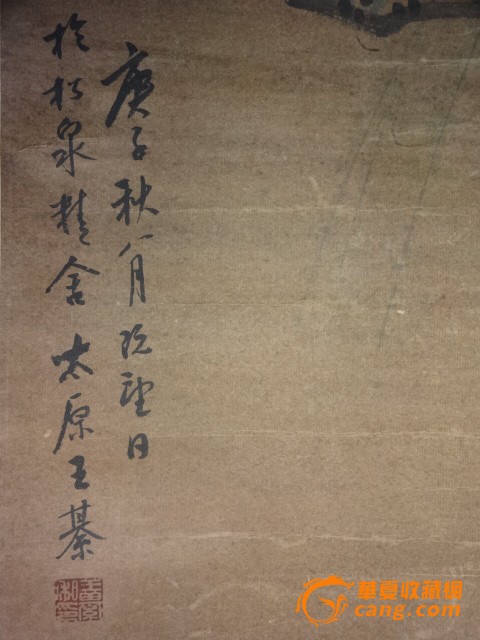 庚子秋八月既望日
於松泉精舍太原王綦
華夏收藏網
cang.com